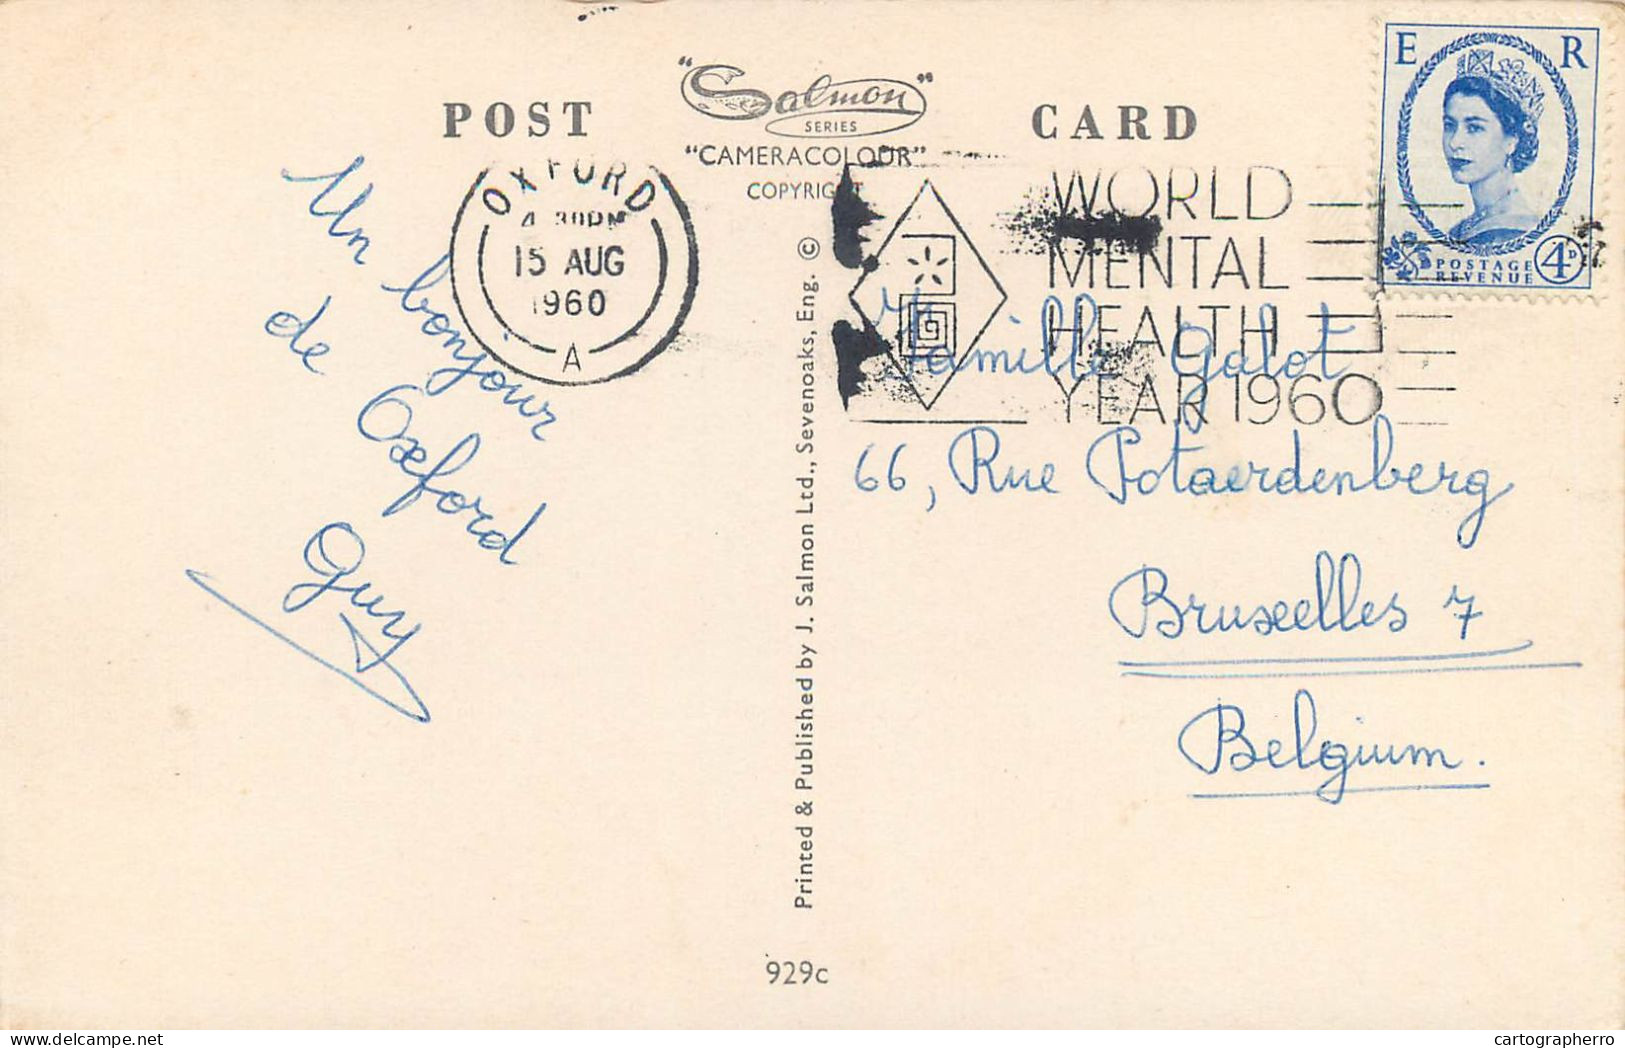 POST
"Salmon"
SERIES
CARD
"CAMERACOLOUR"
COPYRIGHT
E R
POSTAGE
REVENUE
4D
OXFORD
4.30PM
15 AUG
1960
A
WORLD
MENTAL
HEALTH
YEAR 1960
Un bonjour
de Oxford
Guy
Famille Galot
66, Rue Potaerdenberg
Bruxelles 7
Belgium.
Printed & Published by J. Salmon Ltd., Sevenoaks, Eng. ©
929c
cartographerro